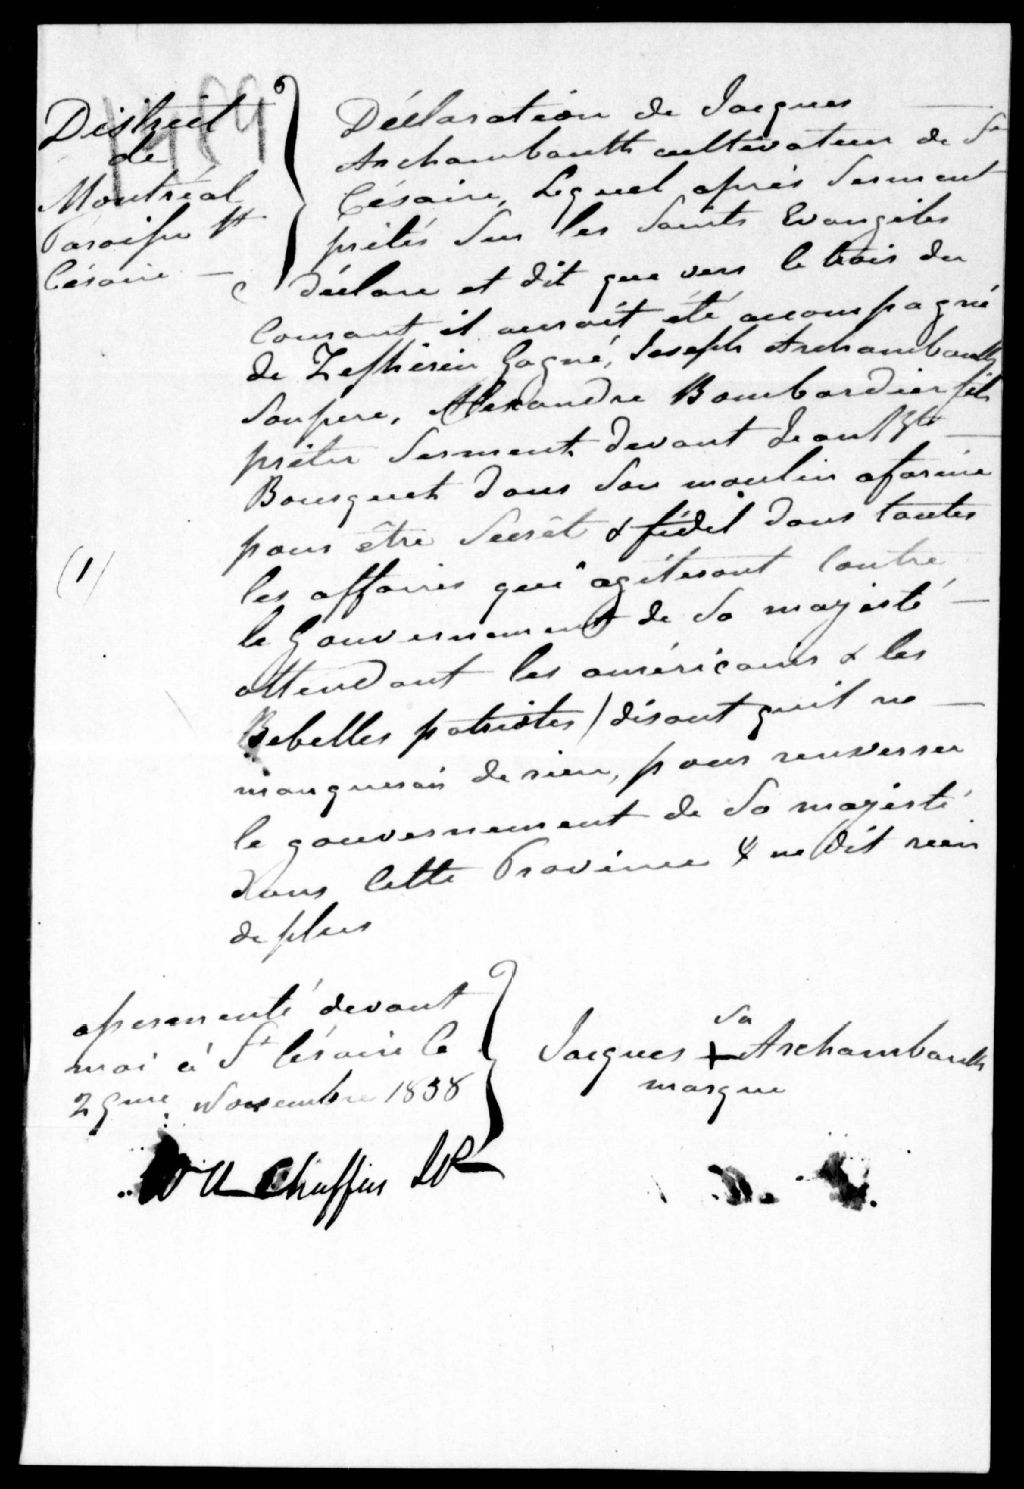 1439
District
de
Montréal
Paroisse St
Césaire —
Déclaration de Jacques —
Archambault cultivateur de St
Césaire, Lequel après Serment
prêtés Sur les Saints Evangiles
déclare et dit que vers le trois du
Courant il auroit été accompagné
de Zepherin Gagné, Joseph Archambault
Son pere, Alexandre Bombardier fils
prêter Serment devant Jean Bte —
Bousquet dans Son moulin afarine
pour être Secrèt & fidel dans toutes
les affaires qui agiteront Contre
le Gouvernement de Sa majesté —
attendant les américains & les
Rebelles patriotes / disant quil ne —
manquerais de rien, pour renverser
le gouvernement de Sa majesté
dans Cette Province & ne dit rien
de plus
(1)
asermenté devant
moi à St Césaire le
29me Novembre 1838
W U Chaffers JP
Sa
Jacques + Archambault
marque